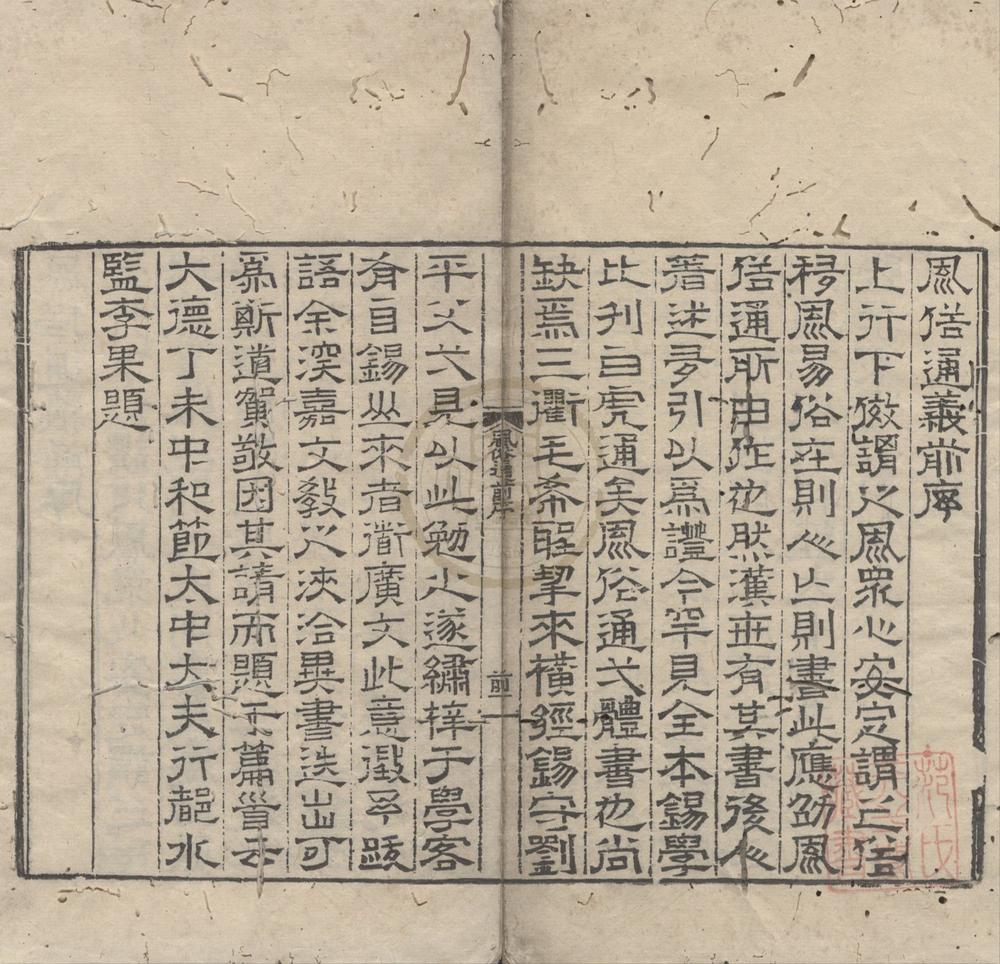 風俗通義前序
上行下傚謂之風衆心安定謂之俗
移風易俗在則人亡則書此應劭風
俗通所由作也然漢世有其書後人
著述多引以爲證今罕見全本錫學
比刊白虎通矣風俗通弌體書也尚
缺焉三衢毛希聖挈來橫經錫守劉
風俗通前序
前一
平父弌見以此勉之遂繡梓于學客
有自錫山來者衜廣文此意徵予跋
語余深嘉文敎之浹洽異書迭出可
爲斯道賀敬因其請而題于篇首云
大德丁未中和節大中大夫行都水
監李果題